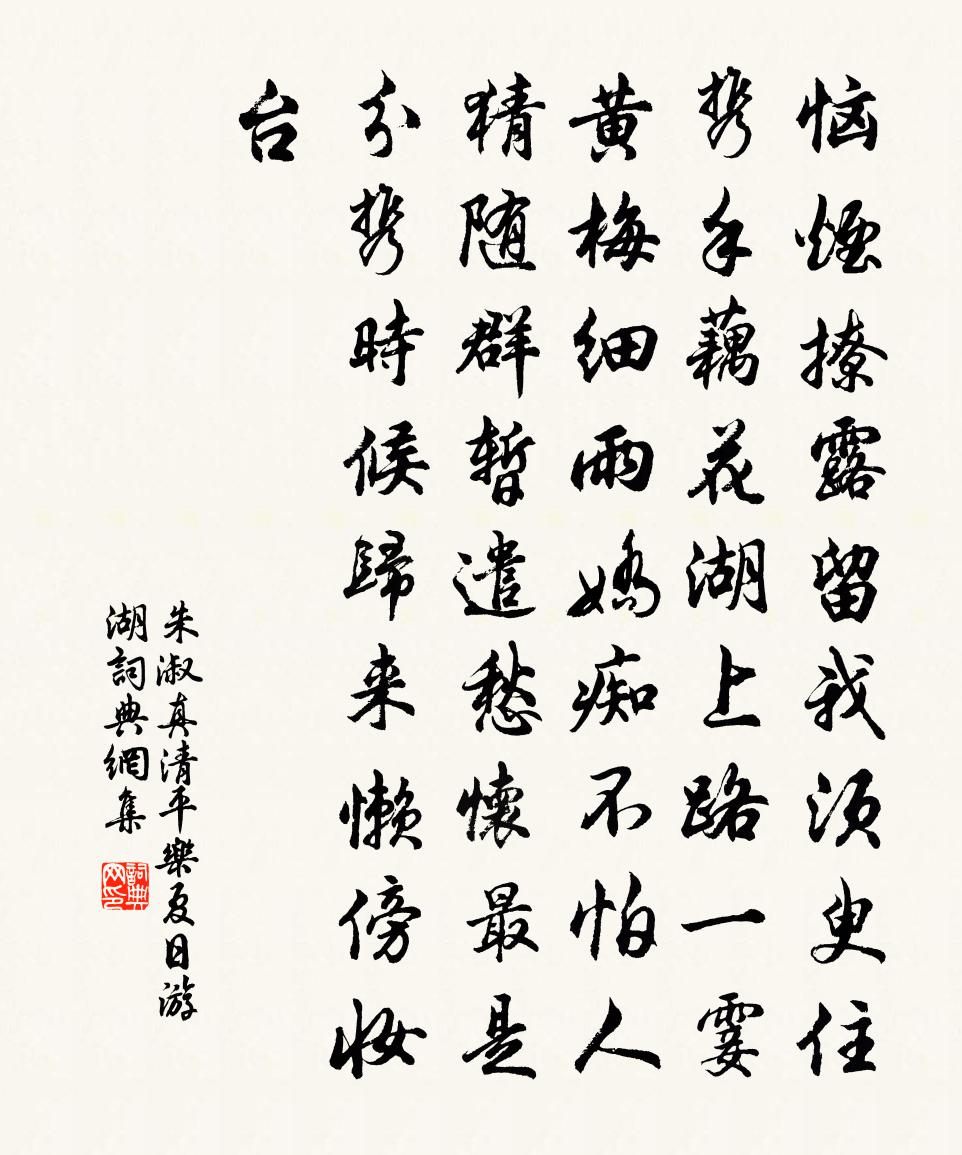 恼煙撩露留我须臾住
携手藕花湖上路一霎
黄梅细雨嬌痴不怕人
猜随群暫遣愁懷最是
分携時候歸来懒傍妆
台
朱淑真清平樂夏日游
湖詞典網集
詞典
网印